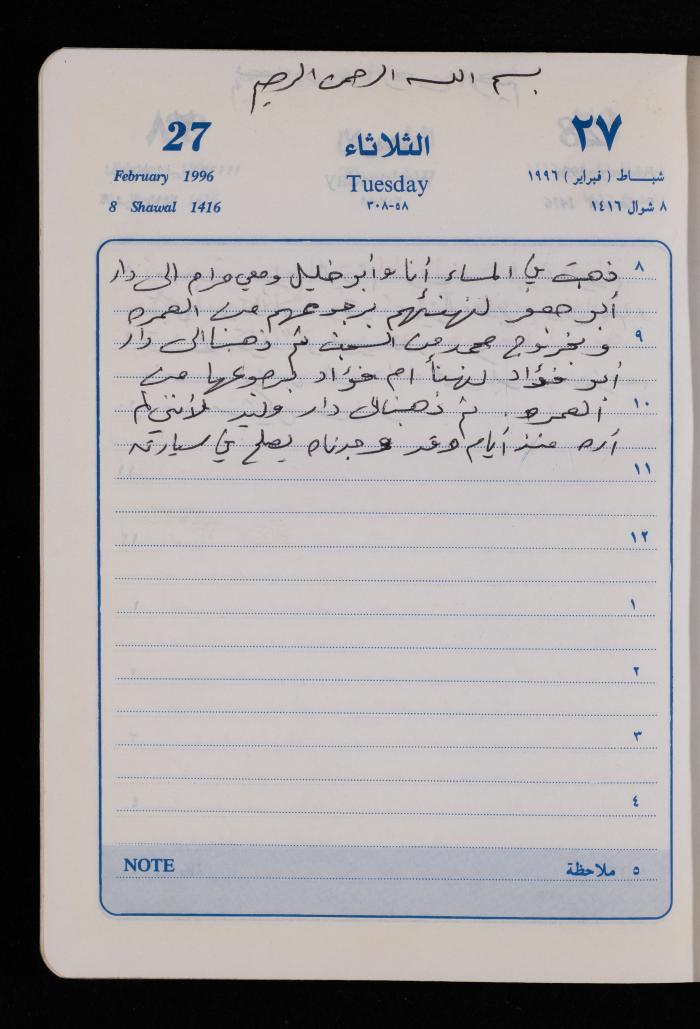 بسم الله الرحمن الرحيم
27 الثلاثاء ٢٧
February 1996 Tuesday شباط ( فبراير ) ١٩٩٦
8 Shawal 1416 ٣٠٨-٥٨ ٨ شوال ١٤١٦
٨ ذهبت في المساء أنا وأبو خليل ومعي مرام الى دار
أبو صفر لنهنئهم برجوعهم من العمره
٩ وبخروج محمد من السجن ثم ذهبنا الى دار
أبو فؤاد لنهنأ ام فؤاد لرجوعها من
١٠ العمره . ثم ذهبنا الى دار وليد لأنني لم
أره منذ أيام وقد وجدناه يصلح في سيارته
١١
١٢
١
٢
٣
٤
NOTE ٥ ملاحظة